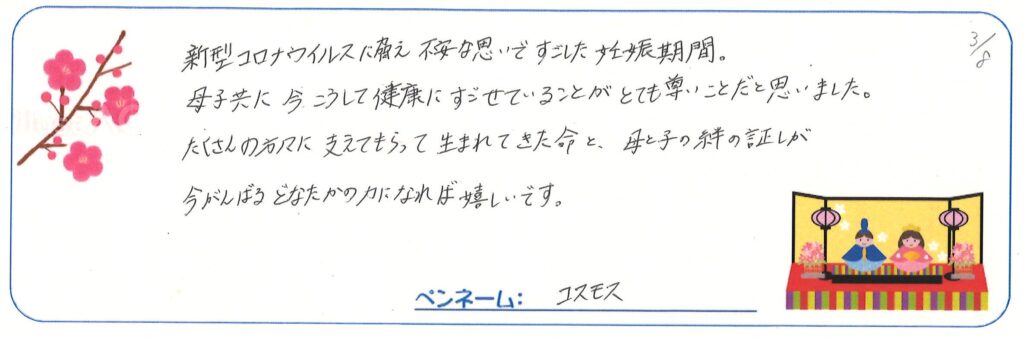 3/8
新型コロナウイルスに脅え 不安な思いですごした妊娠期間。
母子共に 今 こうして健康にすごせていることが とても尊いことだと思いました。
たくさんの方々に 支えてもらって 生まれてきた命と、母と子の絆の証しが
今がんばる どなたかの力になれば嬉しいです。
ペンネーム: コスモス